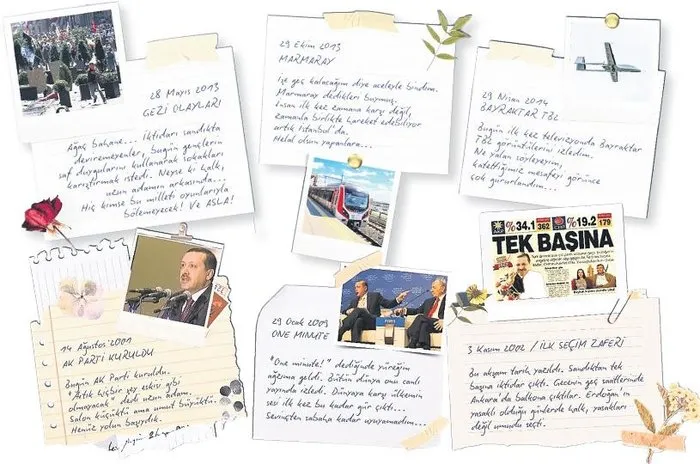 28 Mayıs 2013
GEZİ OLAYLARI
Ağaç bahane... iktidarı sandıkta
deviremeyenler, bugün gençlerin
saf duygularını kullanarak sokakları
karıştırmak istedi. Neyse ki halk,
uzun adamın arkasında...
Hiç kimse bu milleti oyunlarıyla
bölemeyecek! Ve ASLA!
29 Ekim 2013
MARMARAY
İşe geç kalacağım diye aceleyle bindim.
Marmaray dedikleri buymuş.
İnsan ilk kez zamana karşı değil,
zamanla birlikte hareket edebiliyor
artık İstanbul'da.
Helal olsun yapanlara...
29 Nisan 2014
BAYRAKTAR TB2
Bugün ilk kez televizyonda Bayraktar
TB2 görüntülerini izledim.
Ne yalan söyleyeyim,
katettiğimiz mesafeyi görünce
çok gururlandım...
14 Ağustos 2001
AK PARTİ KURULDU
Bugün AK Parti kuruldu.
"Artık hiçbir şey eskisi gibi
olmayacak" dedi uzun adam.
Salon küçüktü ama umut büyüktü.
Henüz yolun başıydık.
29 Ocak 2009
ONE MINUTE
"One minute!" dediğinde yüreğim
ağzıma geldi. Bütün dünya onu canlı
yayında izledi. Dünyaya karşı ülkemin
sesi ilk kez bu kadar gür çıktı...
Sevinçten sabaha kadar uyuyamadım...
%34.1 362 %19.2 179
TEK BAŞINA
3 Kasım 2002 / İLK SEÇİM ZAFERİ
Bu akşam tarih yazıldı. Sandıktan tek
başına iktidar çıktı. Gecenin geç saatlerinde
Ankara'da balkona çıktılar. Erdoğan'ın
yasaklı olduğu günlerde halk, yasakları
değil umudu seçti.